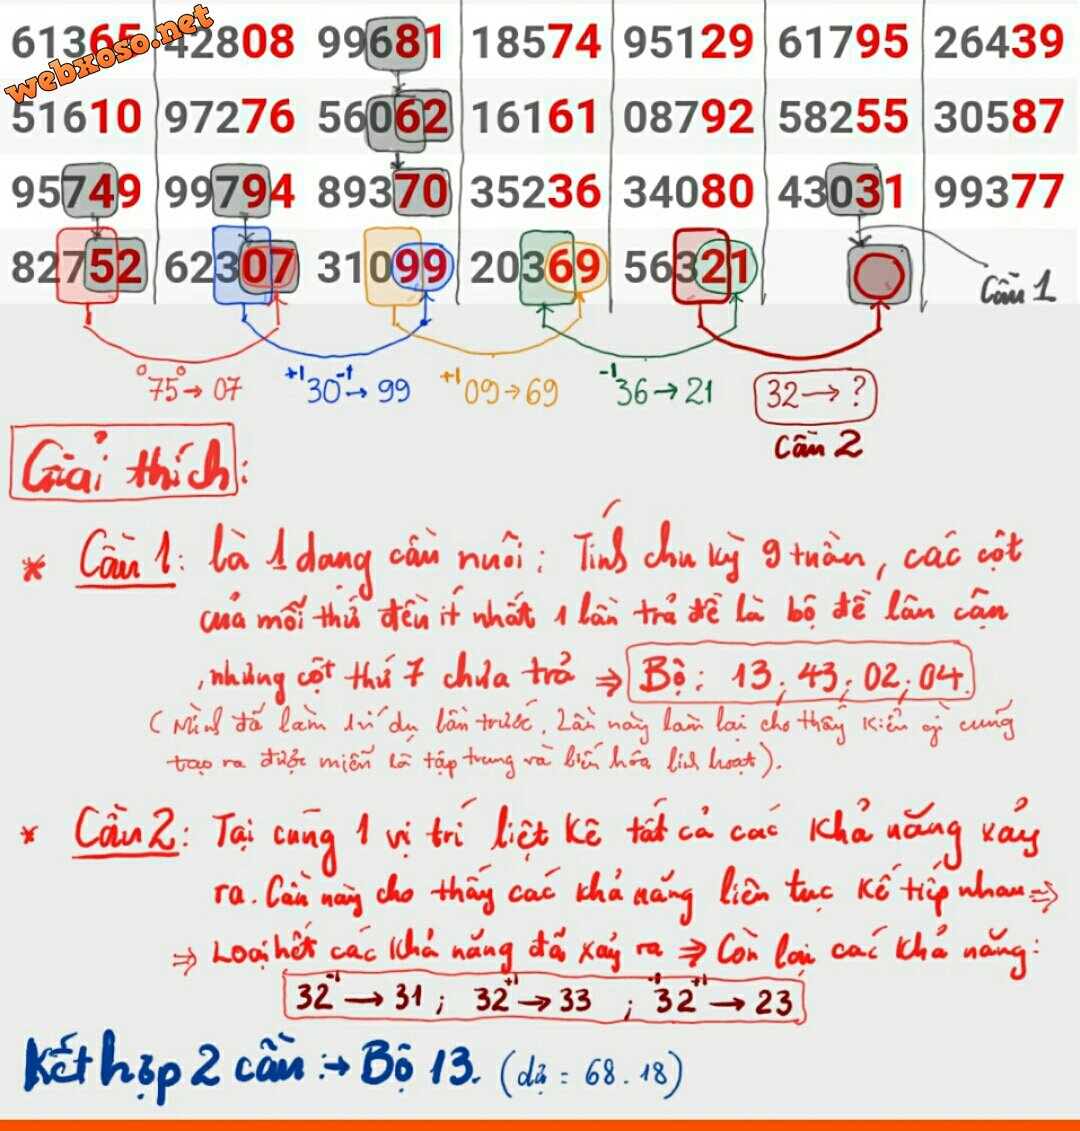 webxoso.net
61365 42808 99681 18574 95129 61795 26439
51610 97276 56062 16161 08792 58255 30587
95749 99794 89370 35236 34080 43031 99377
82752 62307 31099 20369 56321
Cầu 1
0 75 0 → 07 +1 30 -1 → 99 +1 09 → 69 -1 36 → 21 32 → ?
Cầu 2
Giải thích:
* Cầu 1: là 1 dạng cầu nuôi: Tính chu kỳ 9 tuần, các cột
của mỗi thứ đều ít nhất 1 lần trả đề là bộ đề lân cận
, nhưng cột thứ 7 chưa trả ⇒ Bộ: 13, 43, 02, 04.
(Mình đã làm 1 ví dụ lần trước, lần này làm lại cho thấy kiểu gì cũng
tạo ra được miễn là tập trung và biến hóa linh hoạt).
* Cầu 2: Tại cùng 1 vị trí liệt kê tất cả các khả năng xảy
ra. Cầu này cho thấy các khả năng liên tục kế tiếp nhau ⇒
⇒ Loại hết các khả năng đã xảy ra ⇒ Còn lại các khả năng:
32 -1 → 31 ; 32 +1 → 33 ; -1 32 +1 → 23
Kết hợp 2 cầu :→ Bộ 13. (dự : 68.18)